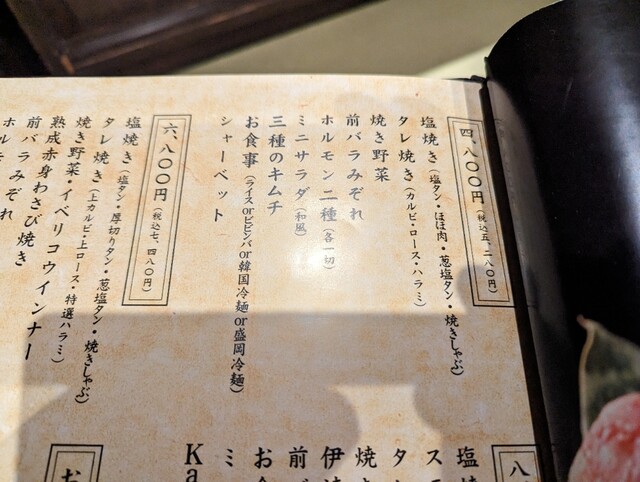 四、八〇〇円(税込五、二八〇円)
塩焼き(塩タン・ほほ肉・葱塩タン・焼きしゃぶ)
タレ焼き(カルビ・ロース・ハラミ)
焼き野菜
前バラみぞれ
ホルモン二種(各一切)
ミニサラダ(和風)
三種のキムチ
お食事(ライスorビビンバor韓国冷麺or盛岡冷麺)
シャーベット
六、八〇〇円(税込七、四八〇円)
塩焼き(塩タン・厚切りタン・葱塩タン・焼きしゃぶ)
タレ焼き(上カルビ・上ロース・特選ハラミ)
焼き野菜・イベリコウインナー
熟成赤身わさび焼き
前バラみぞれ
ホルモ
八
塩
ス
タ
焼
伊
前
お
ミ
Ka
お